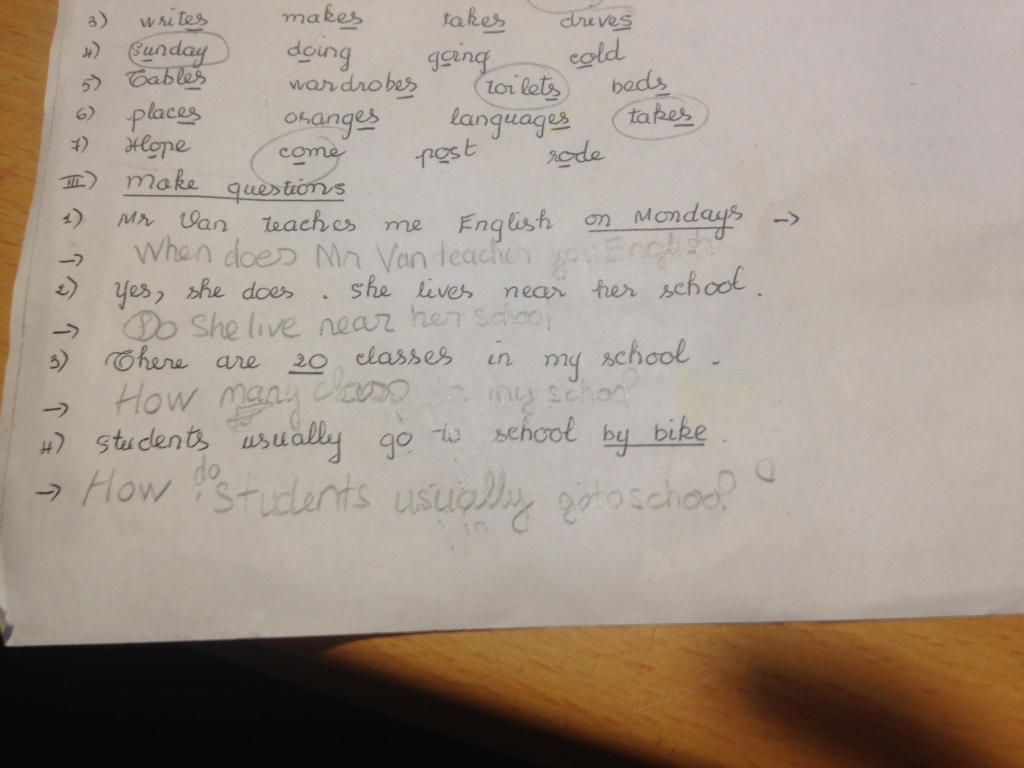 3) writes makes takes drives
4) Sunday doing going cold
5) Tables wardrobes toilets beds
6) places oranges languages takes
7) Hope come post rode
III) Make questions
1) Mr Van teaches me English on Mondays →
→ When does Mr Van teacher you English
2) Yes, she does. She lives near her school.
→ Do She live near her school
3) There are 20 classes in my school.
→ How many class in my school?
4) students usually go to school by bike.
→ How do students usually go to school?